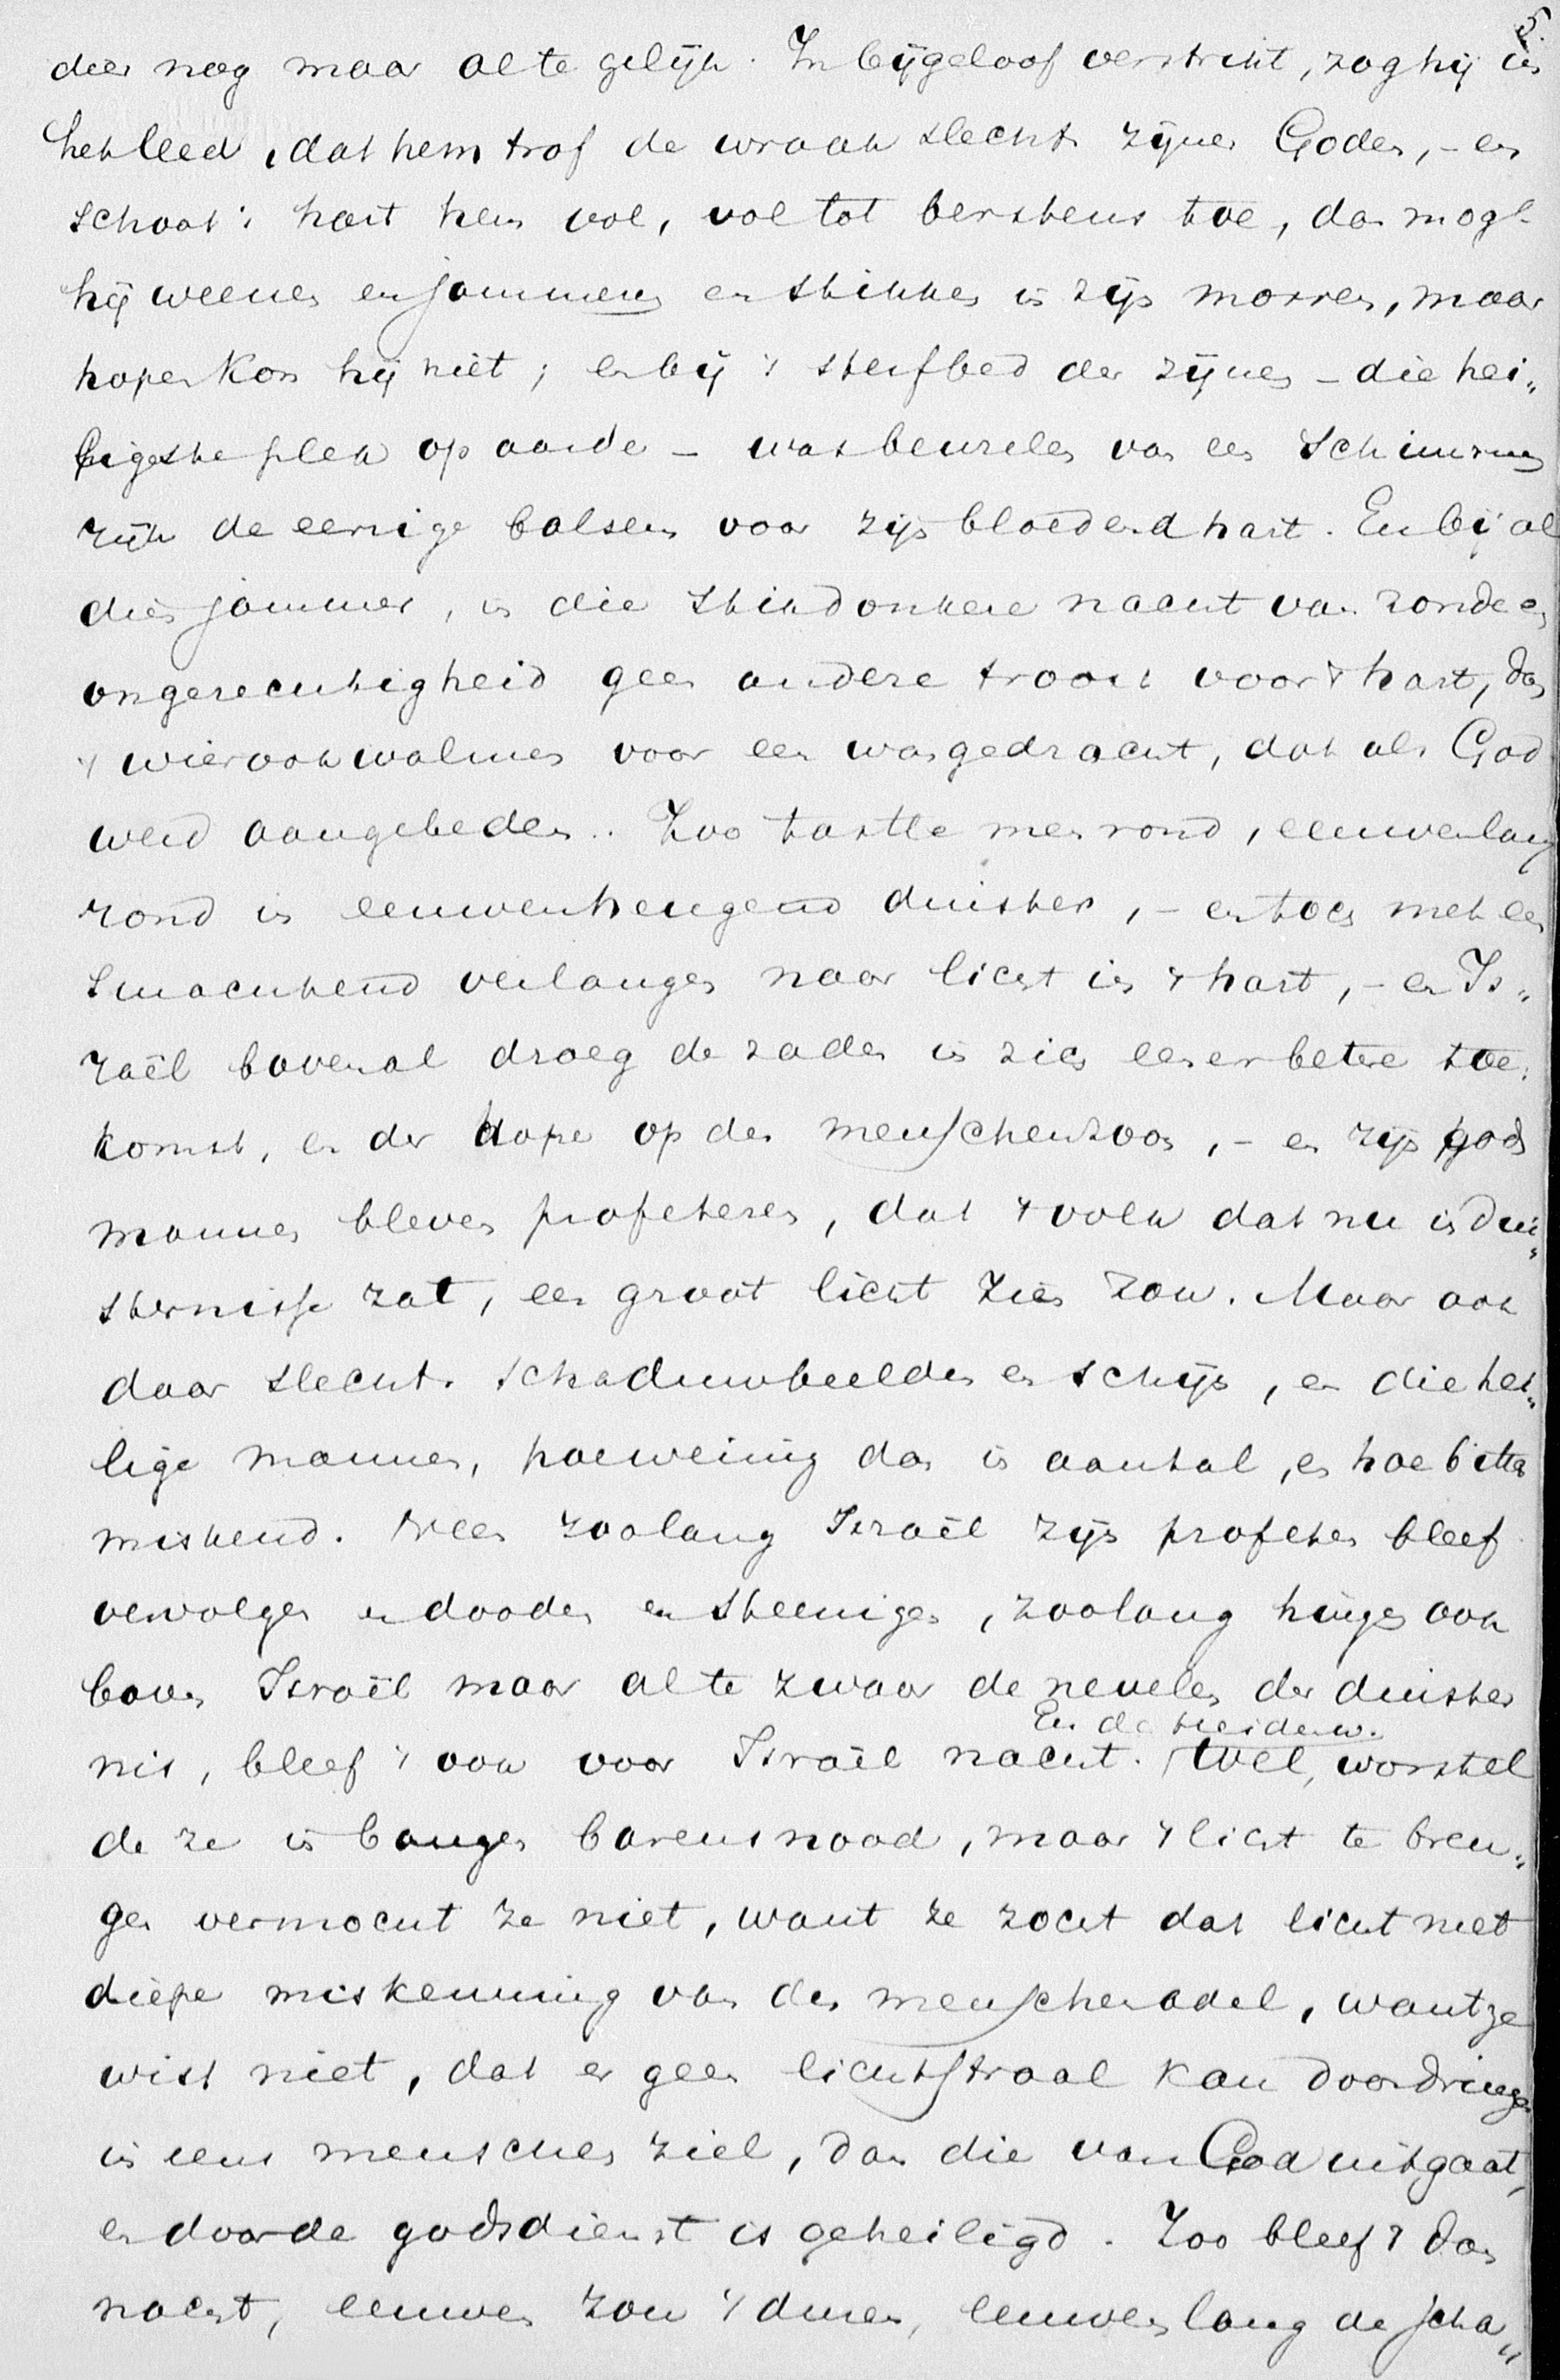 5.
dier nog maar al te gelijk. In bijgeloof verstrikt, zag hij in
het leed, dat hem trof de wraak slechts zijner Goden, - en
schoot 't hart hem vol, vol tot berstens toe, dan mogt
hij weenen en jammeren en stikken in zijn morren, maar
hopen kon hij niet; en bij 't sterfbed der zijnen - die hei„
ligste plek op aarde - was beuzelen van een schimmen
rijk de eenige balsem voor zijn bloedend hart. En bij al
dien jammer, in die stikdonkere nacht van zonde en
ongerechtigheid geen andere troost voor 't hart, dan
't wierookwalmen voor een wangedrocht, dat als God
werd aangebeden.. Zoo tastte men rond, eeuwenlang
rond in eeuwenheugend duister, - en toch met een
smachtend verlangen naar licht in 't hart, - en Is„
raël bovenal droeg de zaden in zich eener betere toe„
komst, en der hope op den menschenzoon, - en zijn gods
mannen bleven profeteren, dat 't volk dat nu in dui„
sternisse zat, een groot licht zien zou. Maar ook
daar slechts schaduwbeelden en schijn, en die hei„
lige mannen, hoe weinig dan in aantal, en hoe bitter
miskend. Neen zoolang Israël zijn profeten bleef
vervolgen en dooden en steenigen, zoolang hingen ook
boven Israël maar al te zwaar de nevelen der duister
nis, bleef 't ook voor Israël nacht. Wel, worstel
En de heidenw.
de ze in bangen barensnood, maar 't licht te bren„
gen vermocht ze niet, want ze zocht dat licht met
diepe miskenning van den menschenadel, want ze
wist niet, dat er geen lichtstraal kan doordringen
in eens menschen ziel, dan die van God uitgaat,
en door de godsdienst is geheiligd. Zoo bleef 't dan
nacht, eeuwen zou 't duren, eeuwen lang de scha„